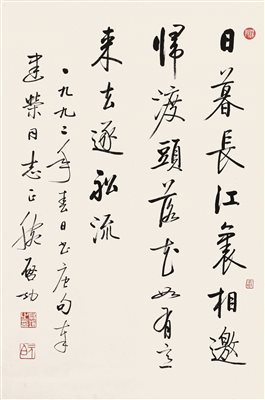 日暮長江裏相邀
歸渡頭落花如有意
來去逐舩流
一九九二年春日書唐句奉
建榮同志正 啟功